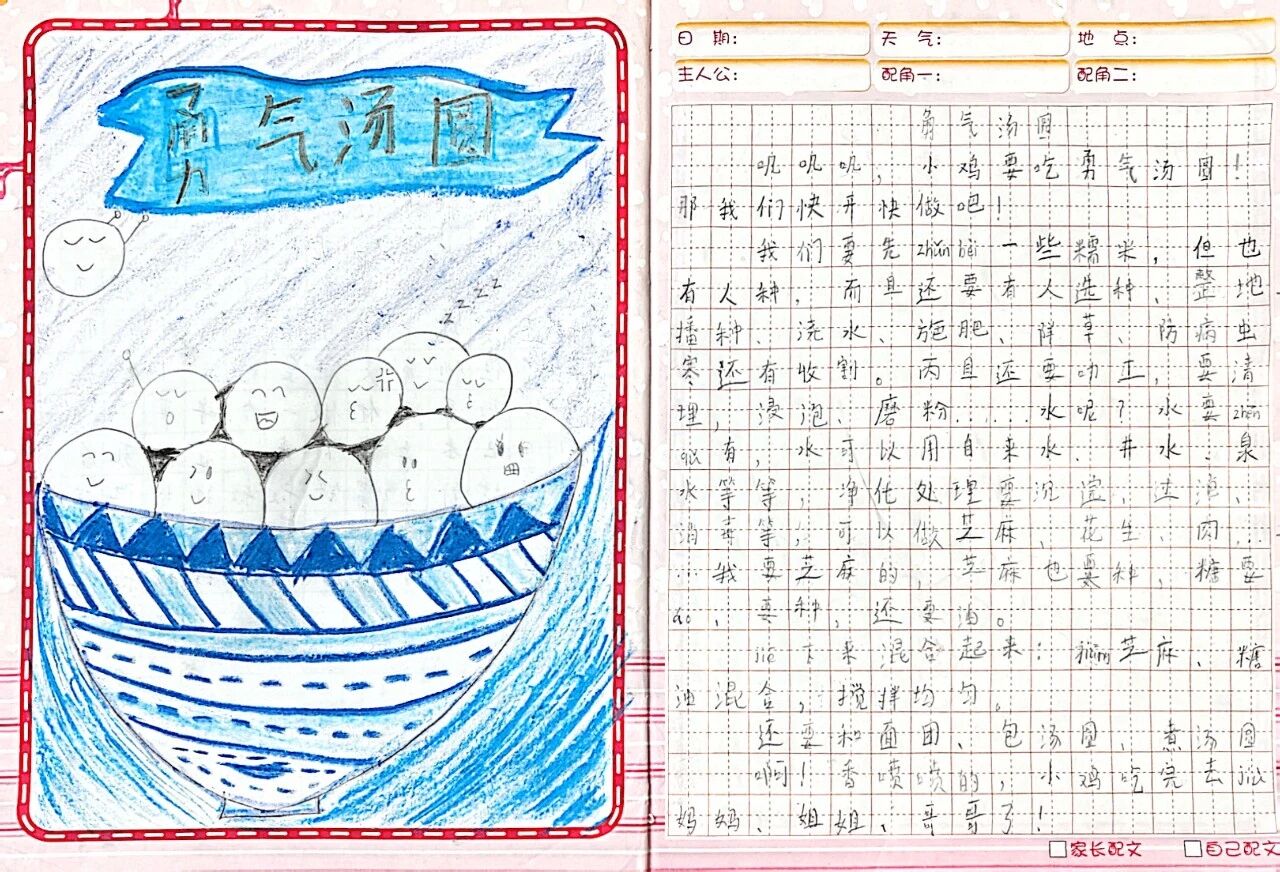 勇气汤圆
zzzz
日 期：
天 气：
地 点：
主人公：
配角一：
配角二：
勇气汤圆
叽叽叽，小鸡要吃勇气汤圆！
那我们快开快做吧！
我们要先zhǔn bèi一些糯米，但也
有人种，而且还要有人选种、整地
播种、浇水、施肥、除草、防病虫
害还有收割。而且还要加工，要清
理，浸泡、磨粉……水呢？水要
有，水可以用自来水、井水、泉
水等等，净化处理要沉淀、过滤、
消毒等，可以做芝麻、花生、肉…
…我要芝麻的，芝麻也要种，糖要
，要种，还要油。
jiē下来混合起来：芝麻、糖
油混合，搅拌均匀。
还要和面团、包汤圆、煮汤圆
啊！香喷喷的，小鸡吃完去jiù
妈妈、姐姐、哥哥了！
家长配文
自己配文